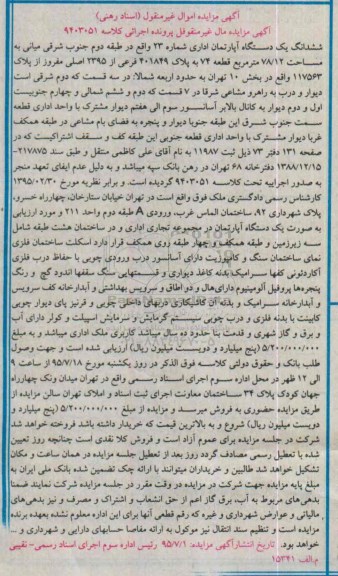 آگهی مزایده اموال غیرمنقول (اسناد رهنی)
آگهی مزایده مال غیرمنقول پرونده اجرائی کلاسه ۹۴۰۳۰۵۱
ششدانگ یک دستگاه آپارتمان اداری شماره ۲۳ واقع در طبقه دوم جنوب شرقی میانی به
مساحت ۷۸/۱۲ مترمربع قطعه ۷۴ به پلاک ۴۰۱۸۴۹ فرعی از ۲۳۹۵ اصلی مفروز از پلاک
۱۱۷۵۶۳ واقع در بخش ۱۰ تهران به حدود اربعه شمالا: در سه قسمت که دوم شرقی است
دیوار و درب به راهرو مشاعی شرقا در ۷ قسمت که دوم و ششم شمالی و چهارم جنوبیست
اول و دوم دیوار به کانال بالابر آسانسور سوم الی هفتم دیوار مشترک با واحد اداری قطعه
سمت جنوب شرق این طبقه جنوبا دیوار و پنجره به فضای بام مشاعی در طبقه همکف
غربا دیوار مشترک با واحد اداری قطعه جنوبی این طبقه کف و سقف اشتراکیست که در
صفحه ۱۳۱ دفتر ۷۳ ذیل ثبت ۱۱۹۸۷ به نام آقای علی کاظمی منتقل و طبق سند ۲۱۷۸۷۵-
۱۳۸۸/۱۲/۱۵ دفترخانه ۶۸ تهران در رهن بانک سپه میباشد و به دلیل عدم ایفای تعهد منجر
به صدور اجراییه تحت کلاسه ۹۴۰۳۰۵۱ گردیده است. و برابر نظریه مورخ ۱۳۹۵/۰۲/۳۰
کارشناس رسمی دادگستری ملک فوق واقع است در تهران خیابان ستارخان، چهارراه خسرو،
پلاک شهرداری ۹۲، ساختمان الماس غرب، ورودی A طبقه دوم واحد ۲۱۱ و مورد ارزیابی
به صورت یک دستگاه آپارتمان در مجموعه تجاری اداری و در ساختمان هشت طبقه شامل
سه زیرزمین و طبقه همکف و چهار طبقه روی همکف قرار دارد اسکلت ساختمان فلزی
نمای ساختمان سنگ و کامپوزیت دارای آسانسور درب ورودی چوبی با حفاظ درب فلزی
آکاردئونی کفها سرامیک بدنه کاغذ دیواری و قسمتهایی سنگ سقفها اندود گچ و رنگ
پنجره‌ها پروفیل آلومینیوم دارای‌هال و دو اطاق و سرویس بهداشتی و آبدارخانه کف سرویس
و آبدارخانه سرامیک و بدنه آن کاشیکاری دربهای داخلی چوبی و قرنیز پای دیوار چوبی
کابینت با بدنه فلزی و درب چوبی سیستم گرمایش و سرمایش اسپیلت و کولر دارای آب
و برق و گاز شهری و قدمت بنا حدود ده سال میباشد کاربری ملک اداری میباشد و به مبلغ
۵/۲۰۰/۰۰۰/۰۰۰ (پنج میلیارد و دویست میلیون ریال) ارزیابی شده است و جهت وصول
طلب بانک و حقوق دولتی کلاسه فوق الذکر در روز یکشنبه مورخ ۹۵/۷/۱۸ از ساعت ۹
الی ۱۲ ظهر در محل اداره سوم اجرای اسناد رسمی واقع در تهران میدان ونک چهارراه
جهان کودک پلاک ۳۴ ساختمان معاونت اجرای ثبت اسناد و املاک تهران سالن مزایده از
طریق مزایده حضوری به فروش میرسد و مزایده از مبلغ ۵/۲۰۰/۰۰۰/۰۰۰ (پنج میلیارد و
دویست میلیون ریال) شروع و به بالاترین قیمت که خریدار داشته باشد فروخته خواهد شد
شرکت در جلسه مزایده برای عموم آزاد است و فروش کلا نقدی است چنانچه روز تعیین
شده با تعطیل رسمی مصادف گردد روز بعد از تعطیل جلسه مزایده در همان ساعت و مکان
تشکیل خواهد شد طالبین و خریداران میتوانند با ارائه چک تضمین شده بانک ملی ایران به
مبلغ پایه مزایده جهت شرکت در مزایده در وقت مقرر در جلسه مزایده شرکت نمایند ضمنا
بدهی‌های مربوط به آب، برق گاز اعم از حق انشعاب و اشتراک و مصرف و نیز بدهی‌های
مالیاتی و عوارض شهرداری و غیره که رقم قطعی آنها برای این اداره معلوم نشده بعهده برنده
مزایده است و تنظیم سند انتقال نیز موکول به ارائه مفاصا حسابهای دارایی و شهرداری و ...
خواهد بود. تاریخ انتشارآگهی مزایده: ۹۵/۷/۱ رئیس اداره سوم اجرای اسناد رسمی- نقیبی
م.الف ۱۵۳۴۱